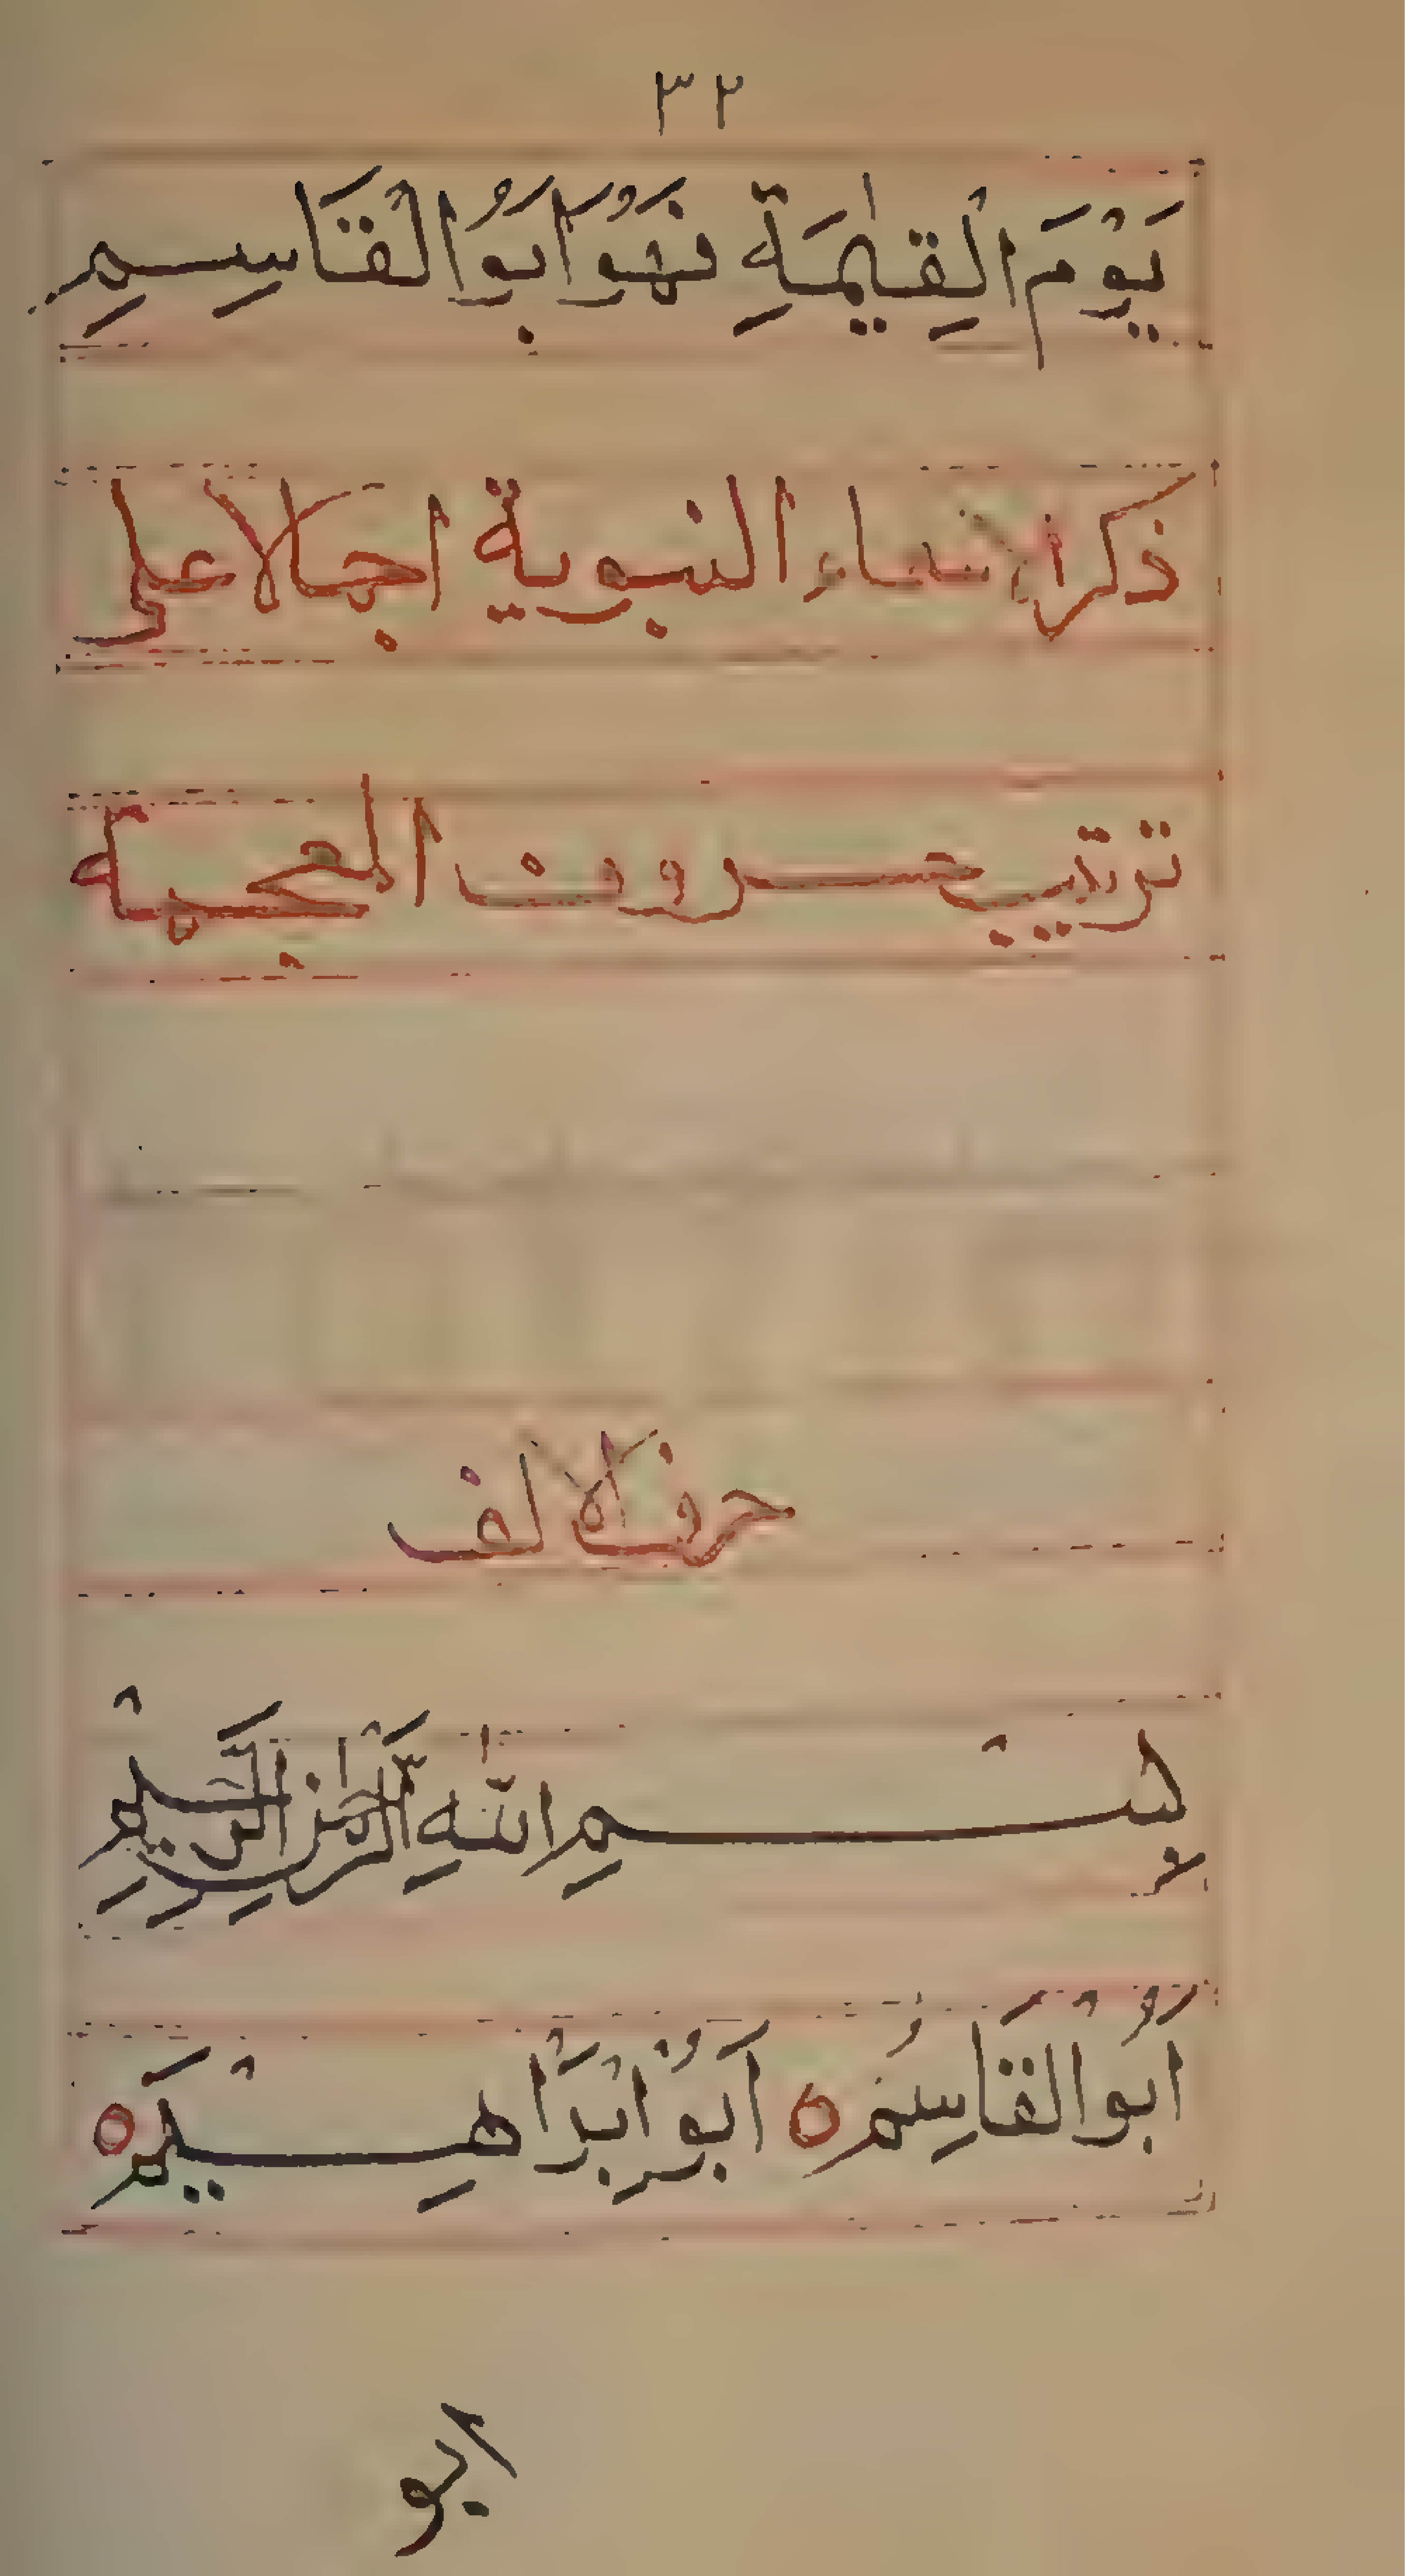 ٣٢
يَوْمَ الْقِيٰمَةِ فَهُوَ اَبُو الْقَاسِمِ
ذكر الاسماء النبوية اجمالا على
ترتيب حروف المعجمة
حرف الالف
بِسْمِ اللّٰهِ الرَّحْمٰنِ الرَّحِيْمِ
اَبُو الْقَاسِمُ ه اَبُوْ اِبْرَاهِيْمَ ه
ابو